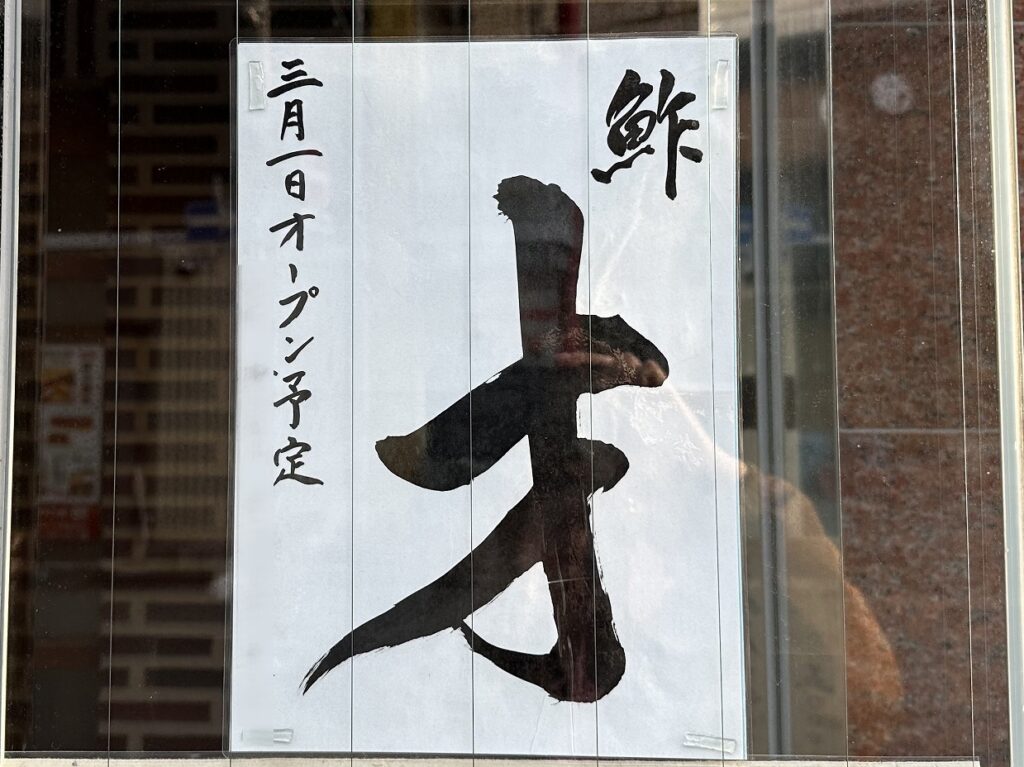 鮓
才
三月一日オープン予定